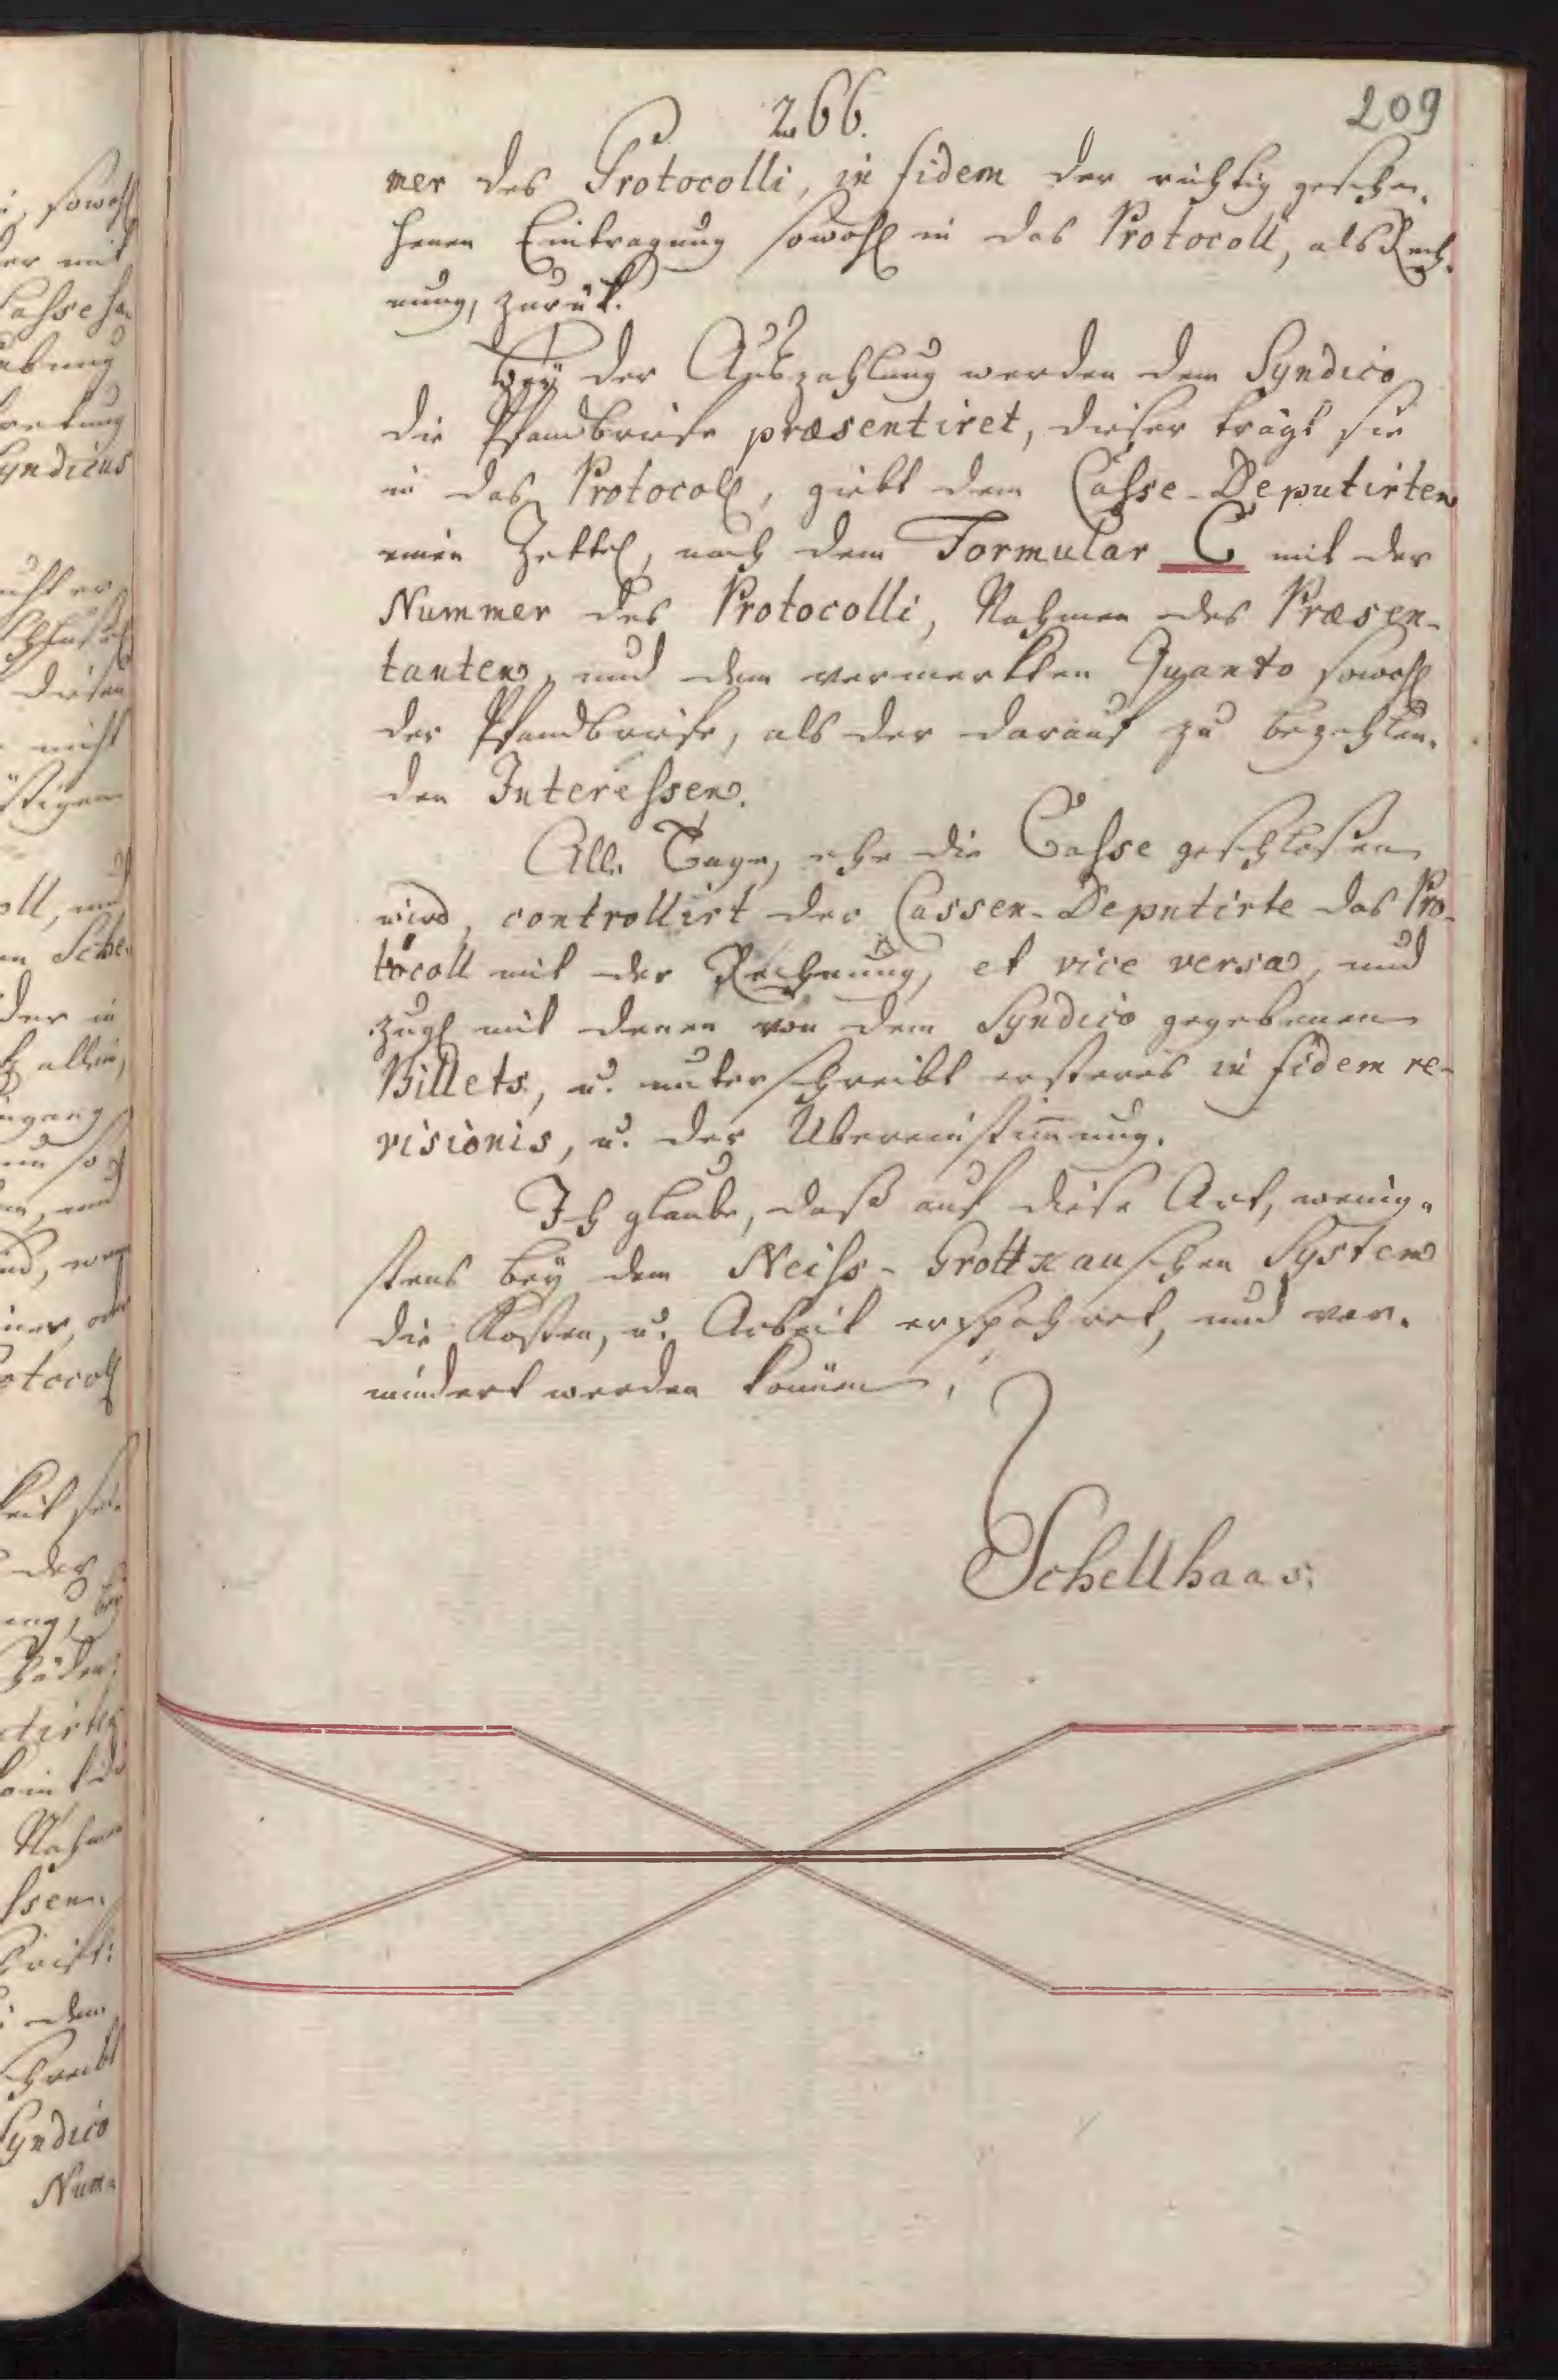 266.
209
mer des Protocolli, in fidem der richtig gesche-
henen Eintragung sowohl in das Protocoll, als Rech-
nung, zurük.
Bey der Auszahlung werden dem Syndico
die Pfandbriefe præsentiret, dieser trägt sie
in das Protocoll, giebt dem Casse-Deputirten
einen Zettel, nach dem Formular C mit der
Nummer des Protocolli, Nahmen des Præsen-
tanten, und dem vermerkten Quanto sowohl
der Pfandbriefe, als der darauf zu bezahlen-
den Interessen.
Alle Tage, ehe die Casse geschlossen
wird, controllirt der Cassen-Deputirte das Pro-
tocoll mit der Rechnung, et vice versa, und
zugl mit denen von dem Syndico gegebenen
Billets, u. unterschreibt ersteres in fidem re-
visionis, u. der Ubereinstim̅ung.
Ich glaube, daß auf diese Art, wenig-
stens bey dem Neiss-Grottkauschen System
die Kosten, u. Arbeit erspahret, und ver-
mindert werden können.
Schellhaas.